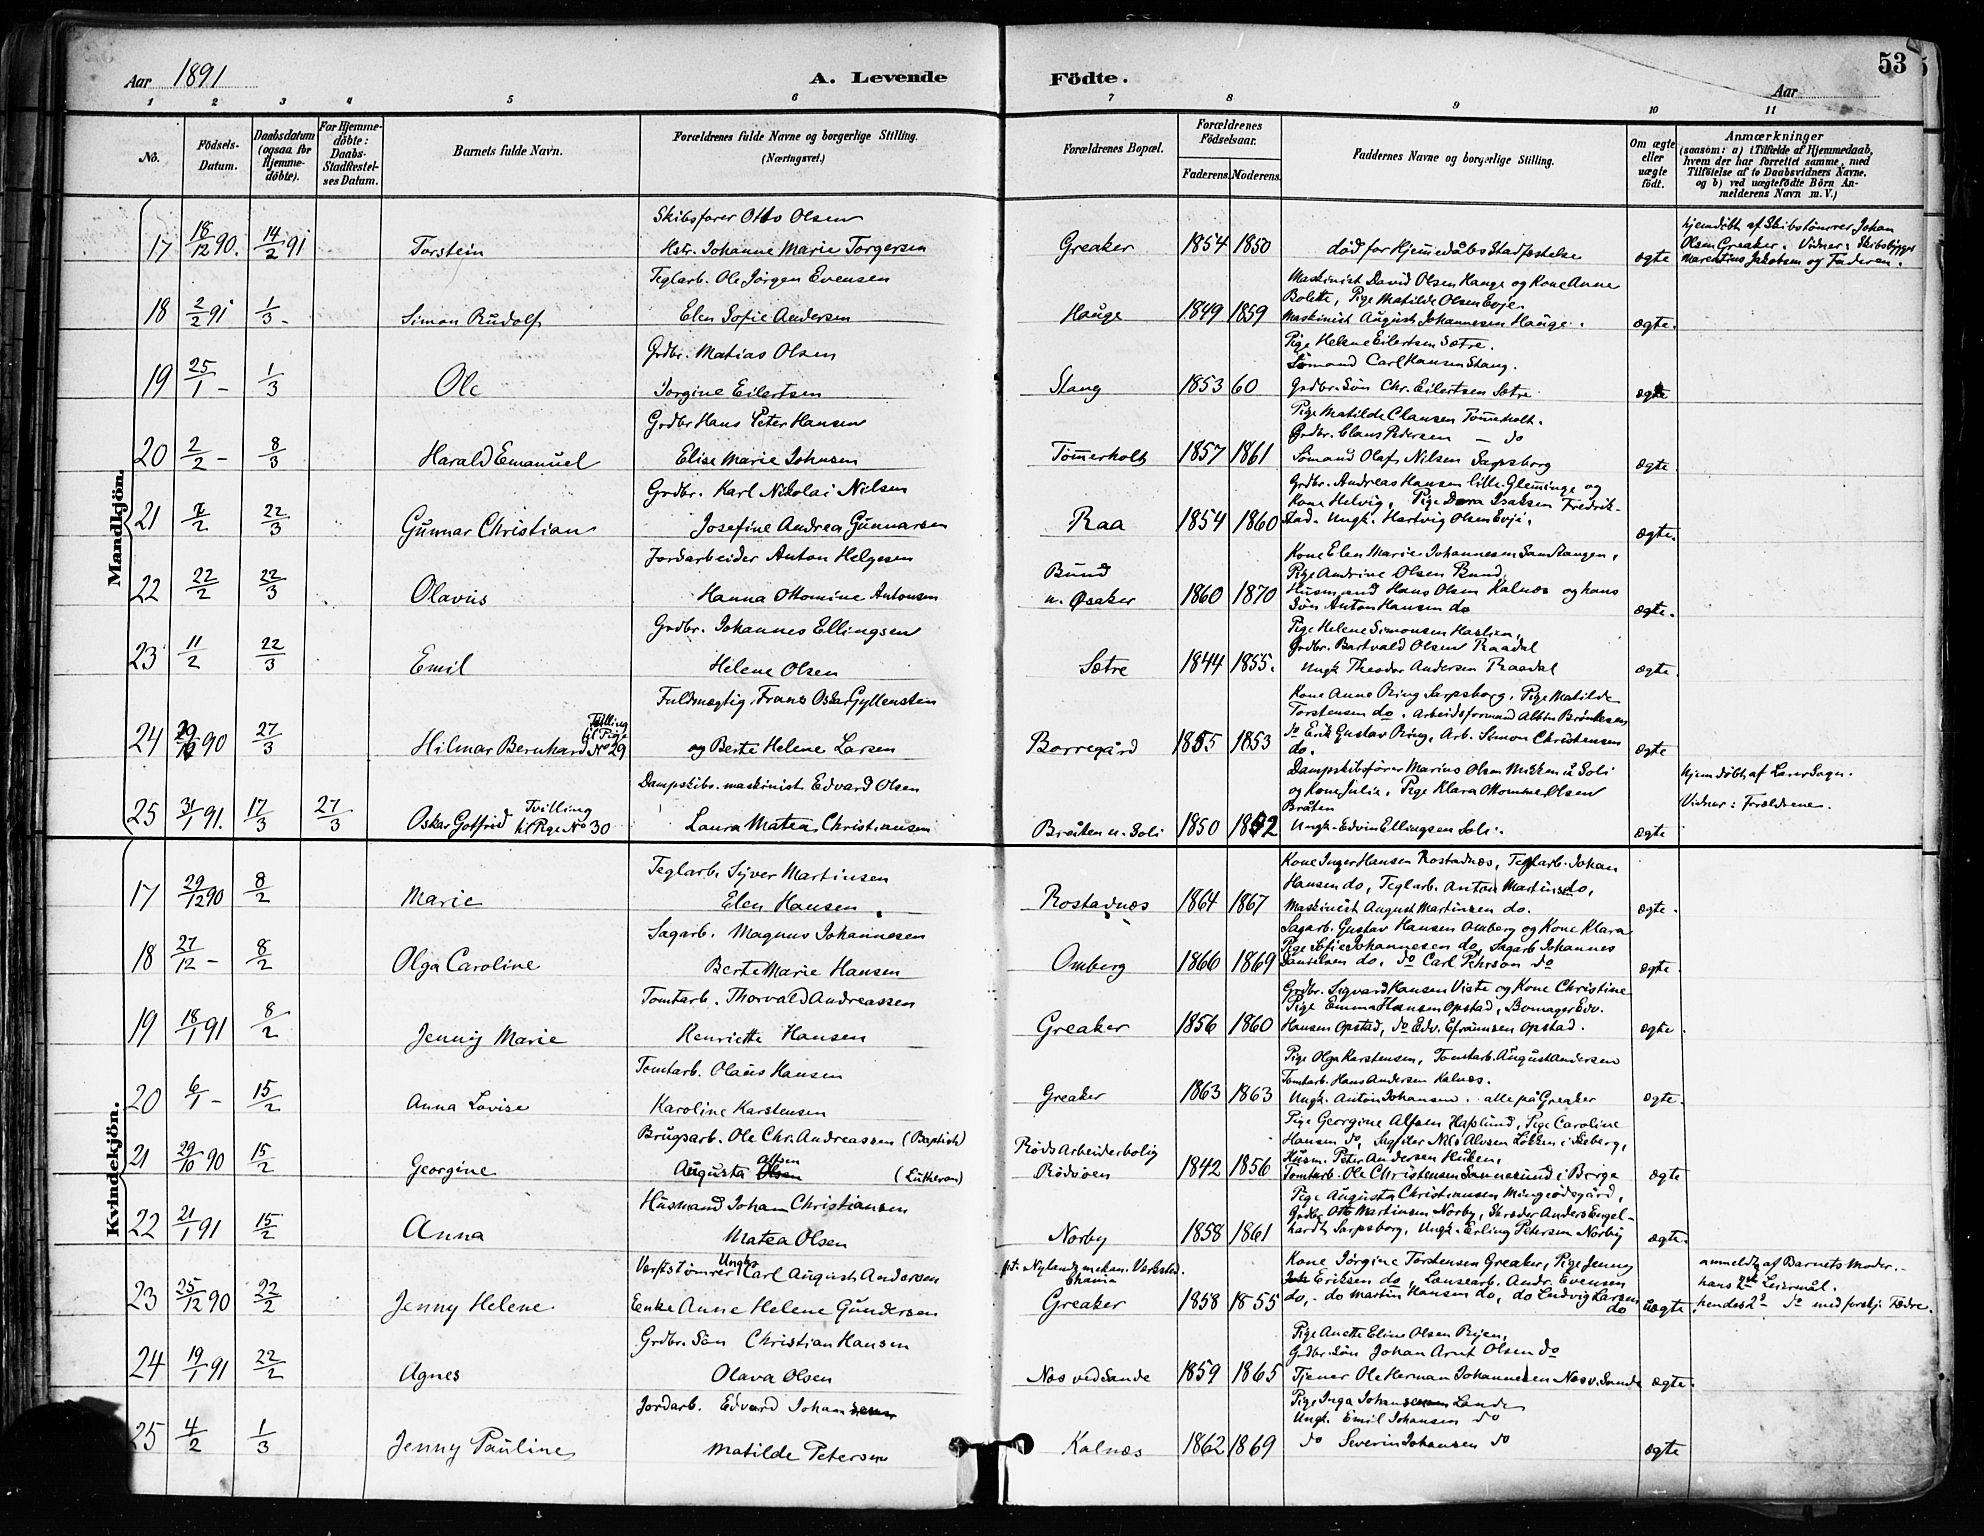 Aar 1891
A. Levende Födte.
53
Aar
1 2 3 4 5 6 7 8 9 10 11
No.
Födsels-Datum.
Daabsdatum (ogsaa for Hjemme-döbte).
For Hjemme-döbte: Daabs-Stadfæstel-ses Datum.
Barnets fulde Navn.
Forældrenes fulde Navne og borgerlige Stilling. (Næringsvei.)
Forældrenes Bopæl.
Forældrenes Födselsaar.
Faderens. Moderens.
Faddernes Navne og borgerlige Stilling.
Om ægte eller uægte födt.
Anmærkninger
(saasom: a) i Tilfælde af Hjemmedaab, hvem der har forrettet samme, med Tilföielse af to Daabsvidners Navne, og b) ved uægtefödte Börn An-melderens Navn m. V.)
Mandkjön.
17 18/12 90. 14/2 91 Torstein
Skibsfører Otto Olsen
Hstr. Johanne Marie Torgersen
Greaker 1854 1850
død før Hjemmedåbs Stadfæstelse
ægte
hjemdöbt af Skibstömrer Johan
Olsen Greaker. Vidner: Skibsbygger
Marentius Jakobsen og Faderen.
18 2/2 91 1/3 - Simon Rudolf
Teglarb. Ole Jörgen Evensen
Elen Sofie Andersen
Hauge 1849 1859
Maskinist David Olsen Hauge og Kone Anne
Bolette, Pige Matilde Olsen Evje
Maskinist August Johannesen Hauge.
ægte.
19 25/1 - 1/3 Ole
Grdbr. Matias Olsen
Jorgine Eilertsen
Stang 1853 60
Pige Helene Eilertsen Sætre.
Sømand Carl Hansen Stang.
Grdbr. Sön Chr. Eilertsen Sætre
ægte
20 2/2 - 8/3 Harald Emanuel
Grdbr Hans Peter Hansen
Elise Marie Johnsen
Tömerholt 1857 1861
Pige Matilde Clausen Tömerholt.
Grdbr. Claus Pedersen — do
Sømand Olaf Nilsen Sarpsborg
ægte
21 7/2 22/3 Gunnar Christian
Grdbr. Karl Nikolai Nilsen
Josefine Andrea Gunnarsen
Raa 1854 1860
Grdbr. Andreas Hansen lille Gleminge og
Kone Helvig, Pige Dora Isaksen Fredrik-
stad. Ungk. Hartvig Olsen Evje.
ægte.
22 22/2 22/3 Olavus
Jordarbeider Anton Helgesen
Hanna Ottomine Antonsen
Bund
u. Øsaker 1860 1870
Kone Elen Marie Johannesen Sandtangen,
Pige Andrine Olsen Bund,
Husmand Hans Olsen Kalnæs og hans
Sön Anton Hansen do
ægte.
23 11/2 22/3 Emil
Grdbr. Johannes Ellingsen
Helene Olsen
Sætre 1844 1855.
Pige Helene Simonsen Haslien,
Grdbr. Bartvald Olsen Raadal
Ungk. Theodor Andersen Raadal
ægte.
24 90 27/3 Hilmar Bernhard
Tvilling til Pige No 29
Fuldmægtig Frans Oskar Gyllensten
og Berte Helene Larsen
Borregård 1855 1853
Kone Anne Ring Sarpsborg, Pige Matilde
Torstensen do. Arbeidsformand Albin Bröndesen
do Erik Gustav Ring, Arb. Simon Christensen
do.
ægte
25 31/1 91. 17/3 27/3 Oskar Gotfrid Tvilling til Pige No 30
Dampskibs.maskinist Edvard Olsen
Laura Matea Christiansen
Bråten u. Soli 1850 1852
Dampskibsförer Marius Olsen Mikken å Soli
og Kone Julie, Pige Klara Ottomine Olsen
Bråten
Ungk. Edvin Ellingsen Soli.
ægte
hjemdöbt af Lærer Sogn.
Vidner: Forældrene.
Kvindekjön.
17 29/12 90 8/2 Marie
Teglarb. Syver Martinsen
Elen Hansen
Rostadnæs 1864 1867
Kone Inger Hansen Rostadnæs, Teglarb. Johan
Hansen do, Teglarb. Anton Martinsen do,
Maskinist August Martinsen do.
ægte.
18 27/12 - 8/2 Olga Caroline
Sagarb. Magnus Johannesen
Berte Marie Hansen
Omberg 1866 1869
Sagarb. Gustav Hansen Omberg og Kone Klara
Pige Sofie Johannesen do, Sagarb. Johannes
Danielsen do, do Carl Pehrson do
ægte.
19 18/1 91 8/2 Jenny Marie
Tomtarb. Thorvald Andreassen
Henriette Hansen
Greaker 1856 1860
Grdbr. Sigvard Hansen Viste og Kone Christine
Pige Emma Hansen Opstad, Bomager Edv.
Hansen Opstad, do Edv. Efraimsen Opstad.
ægte.
20 6/1 - 15/2 Anna Lovise
Tomtarb. Olaus Hansen
Karoline Karstensen
Greaker 1863 1863
Pige Olga Karstensen, Tomtarb. August Andersen
Tomtarb. Hans Andersen Kalnæs.
Ungk. Anton Johansen. alle på Greaker
ægte.
21 29/10 90 15/2 Georgine
Brugsarb. Ole Chr. Andreassen (Baptist)
Augusta Olsen (Lutheran)
Röds Arbeiderbolig
Rödsöen 1842 1856
Pige Georgine Alfsen Hafslund, Pige Caroline
Hansen do, Nils Alvsen Løkken i Skeberg,
Husm. Peter Andersen Huken,
Tomtarb. Ole Christensen Sannesund i Borge
ægte
22 21/1 91 15/2 Anna
Husmand Johan Christiansen
Matea Olsen
Norby 1858 1861
Pige Augusta Christiansen Mingeödegård,
Grdbr Otto Martinsen Norby, Skræder Anders Engel-
hardt Sarpsborg, Ungk. Erling Petersen Norby
ægte.
23 25/12 90 22/2 Jenny Helene
Værftstömrer Ungk. Carl August Andersen
Enke Anne Helene Gundersen
pt. Nylands mekan. Værksted.
Chania
Greaker 1858 1855
Kone Jörgine Torstensen Greaker, Pige Jenny
Eriksen do, Lansearb. Andr. Evensen
do, - do Martin Hansen do, do Ludvig Larsen
do
uægte.
anmeldt af Barnets Moder. -
hans 2det Leiermål.
hendes 2det do med forskj. Fædre.
24 19/1 91 22/2 Agnes
Grdbr. Sön Christian Hansen
Olava Olsen
Næs ved Sande 1859 1865
Pige Anette Eline Olsen Rijen,
Grdbr. sön Johan Arnt Olsen do
Tjener Ole Herman Johannesen Næs v. Sande
ægte.
25 4/2 1/3 Jenny Pauline
Jordarb. Edvard Johansen
Matilde Petersen
Kalnæs 1862 1869
Pige Inga Johansen Lande
Ungk. Emil Johansen do
do Severin Johansen do
ægte